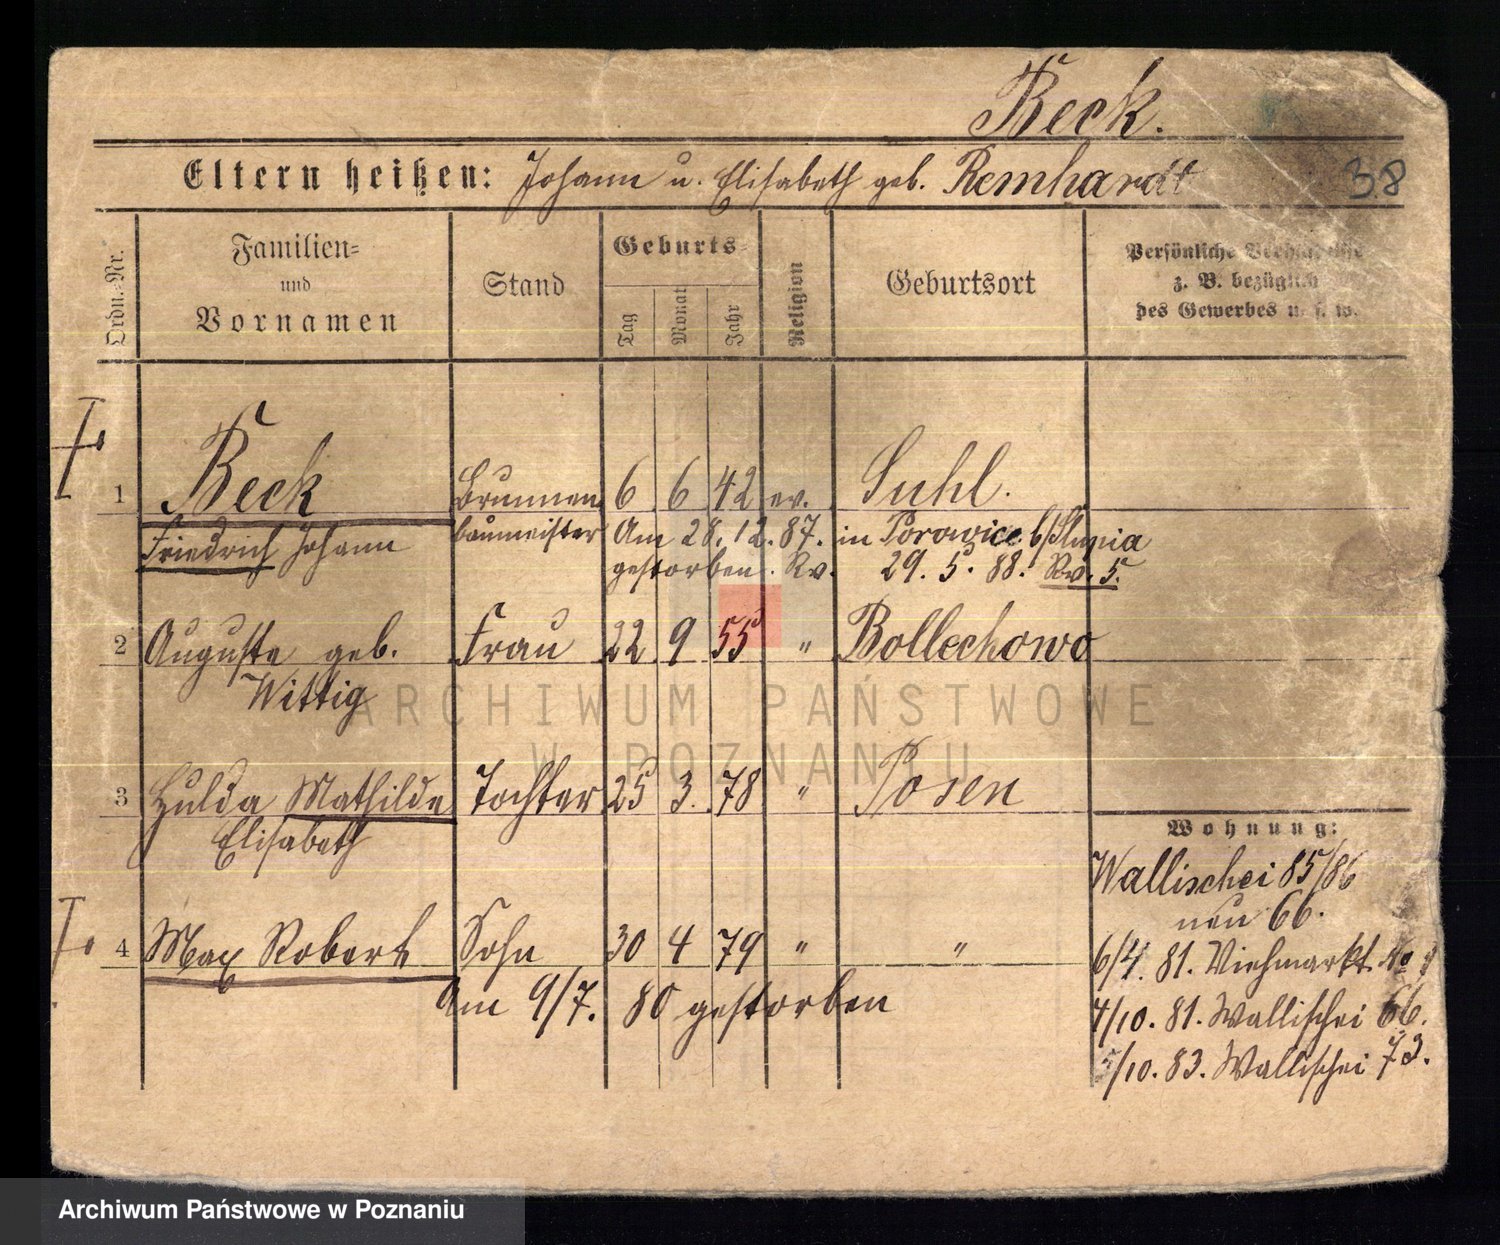 Beck.
Eltern heißen: Johann u. Elisabeth geb. Remhardt
38
Ordn.-Nr.
Familien-
und
Vornamen
Stand
Geburts-
Tag
Monat
Jahr
Religion
Geburtsort
Persönliche Verhältnisse
z. B. bezüglich
des Gewerbes u. s. w.
1 Beck Brunnen 6 6 42 ev. Suhl.
Friedrich Johann baumeister Am 28. 12. 87. in Porowice b/Slupia
gestorben. Rv. 29. 5. 88. Rv. 5.
2 Auguste geb. Frau 22 9 55 " Bollechowo
Wittig
3 Hulda Mathilde Tochter 25 3. 78 " Posen
Elisabeth
4 Max Robert Sohn 30 4 79 " "
Am 9/7. 80 gestorben
Wohnung:
Wallischei 85/86
neu 66.
6/4. 81. Viehmarkt No
4/10. 81. Wallischei 66.
5/10. 83. Wallischei 73.
ARCHIWUM PAŃSTWOWE
W POZNANIU
Archiwum Państwowe w Poznaniu